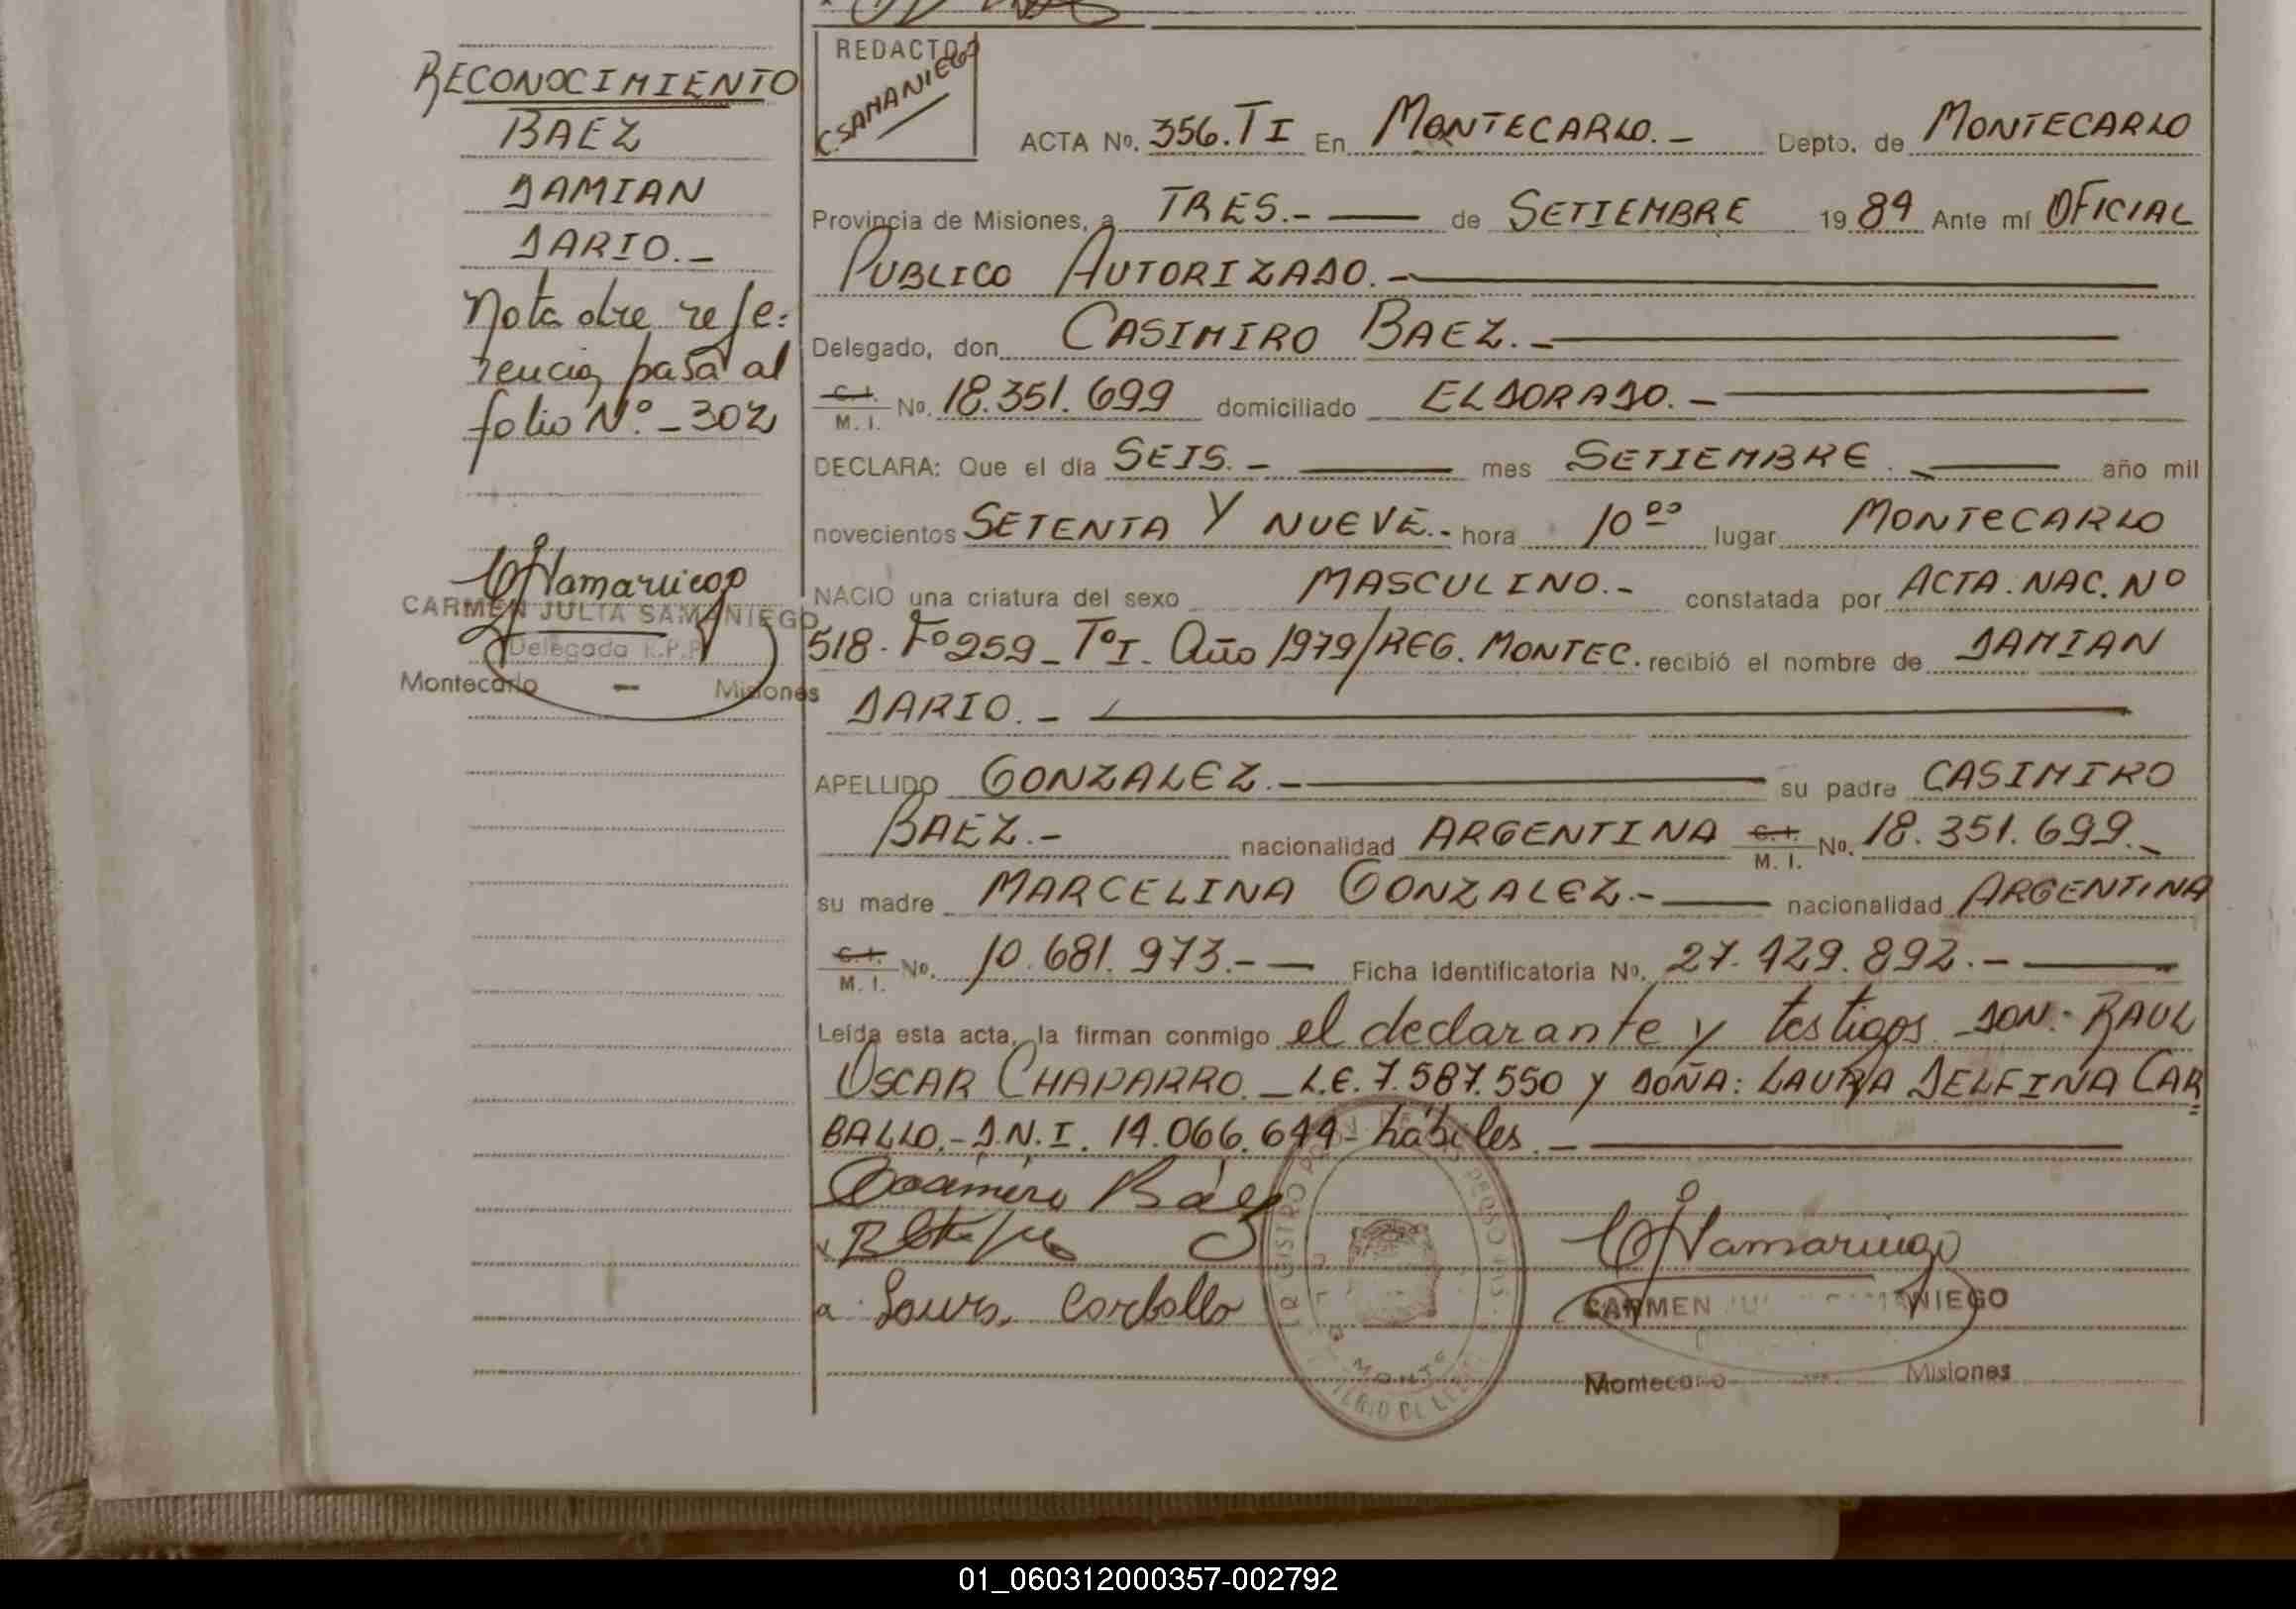 RECONOCIMIENTO
BAEZ
DAMIAN
DARIO.-
Nota dre refe-
rencia, pasa al
folio Nº - 302
CARMEN JULIA SAMANIEGO
Delegada
Montecarlo - Misiones
REDACTOR
C. SAMANIEGO
ACTA Nº. 356. TI En MONTECARLO.- Depto. de MONTECARLO
Provincia de Misiones, a TRES.- de SETIEMBRE 1989 Ante mí OFICIAL
PUBLICO AUTORIZADO.-
Delegado, don CASIMIRO BAEZ.-
C. I. M. I. Nº. 18.351.699 domiciliado ELDORADO.-
DECLARA: Que el día SEIS.- mes SETIEMBRE.- año mil
novecientos SETENTA Y NUEVE.- hora 10ºº lugar MONTECARLO
NACIO una criatura del sexo MASCULINO.- constatada por ACTA. NAC. Nº
518. Fº 259 - TºI. Año 1979/REG. MONTEC. recibió el nombre de DAMIAN
DARIO.-
APELLIDO GONZALEZ.- su padre CASIMIRO
BAEZ.- nacionalidad ARGENTINA C. I. M. I. Nº. 18.351.699.-
su madre MARCELINA GONZALEZ.- nacionalidad ARGENTINA
C. I. M. I. Nº. 10.681.973.- Ficha Identificatoria Nº. 27.429.892.-
Leída esta acta, la firman conmigo el declarante y testigos DON:- RAUL
OSCAR CHAPARRO.- L.E. 7.587.550 y DOÑA: LAURA DELFINA CAR=
BALLO.- D.N.I. 14.066.644- hábiles.-
Casimiro Báez
Laura Carballo
CARMEN SAMANIEGO
Montecarlo Misiones
01_060312000357-002792